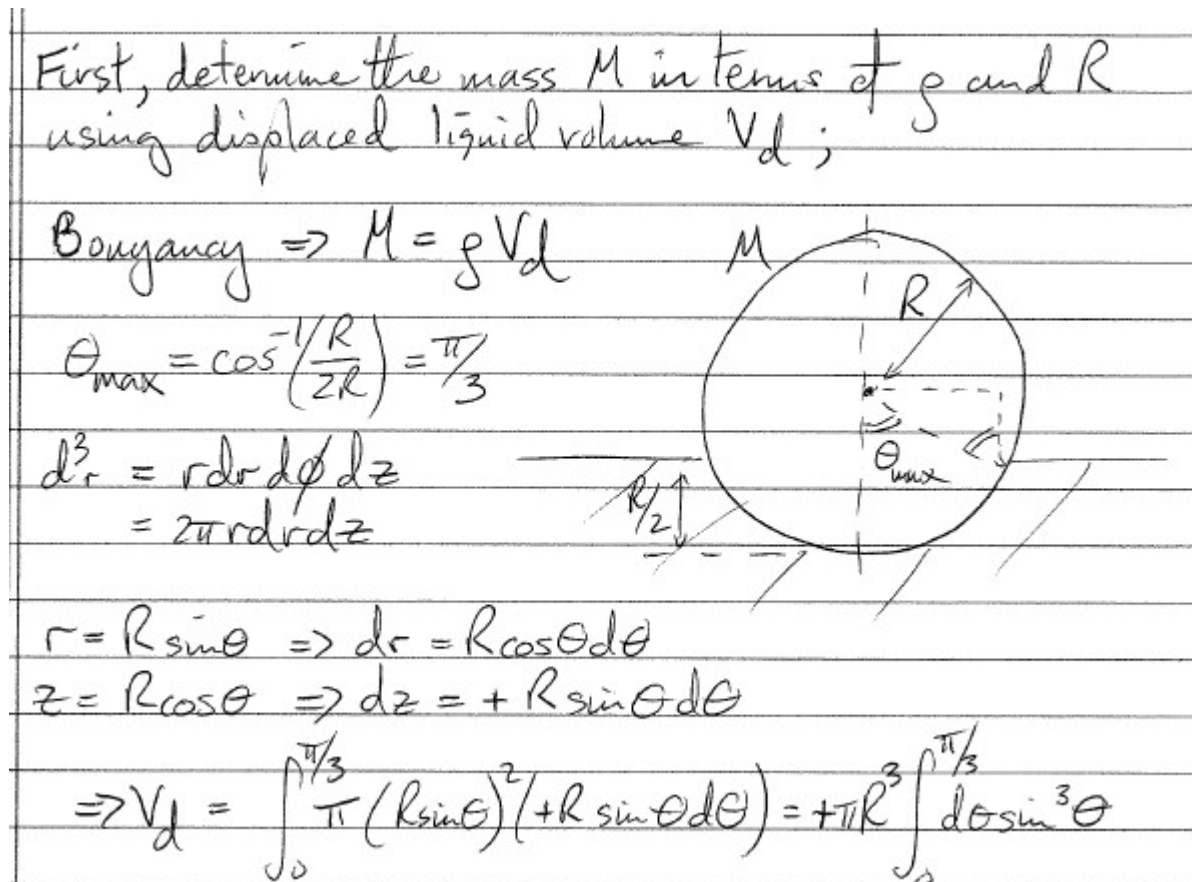 First, determine the mass M in terms of ρ and R
using displaced liquid volume V_d ;
Bouyancy => M = ρV_d
M
R
θ_max = cos^-1(R/2R) = π/3
θ_max
d^3r = r dr dφ dz
= 2π r dr dz
R/2
r = R sinθ => dr = R cosθ dθ
z = R cosθ => dz = + R sinθ dθ
=> V_d = ∫_0^π/3 π (R sinθ)^2 (+R sinθ dθ) = +πR^3 ∫_0^π/3 dθ sin^3θ